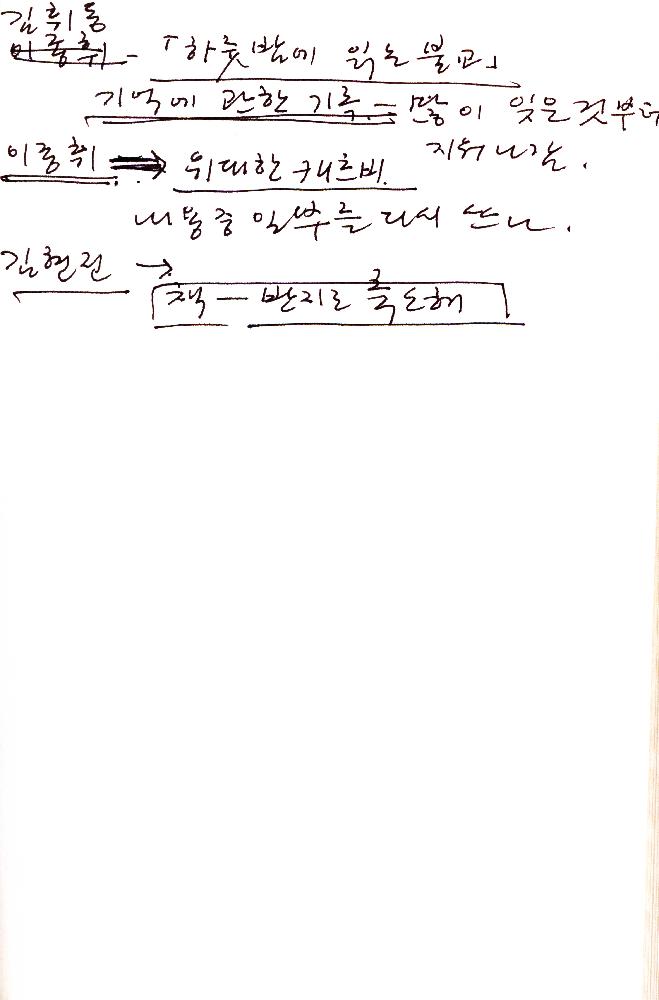 김휘동
이중휘 - 「하룻밤에 읽는 불교」
기억에 관한 기록 = 많이 잊은 것부터
지워나감.
이중휘 ⇒ 위대한 개츠비.
내용 중 일부를 다시 쓰는.
김현진 →
책 — 반지로